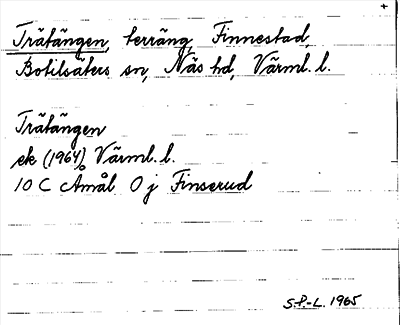 +
Trätängen, terräng, Finnestad,
Botilsäters sn, Näs hd, Värml. l.
Trätängen
ek (1964) Värml. l.
10 C Åmål 0 j Finserud
S.P.-L. 1965